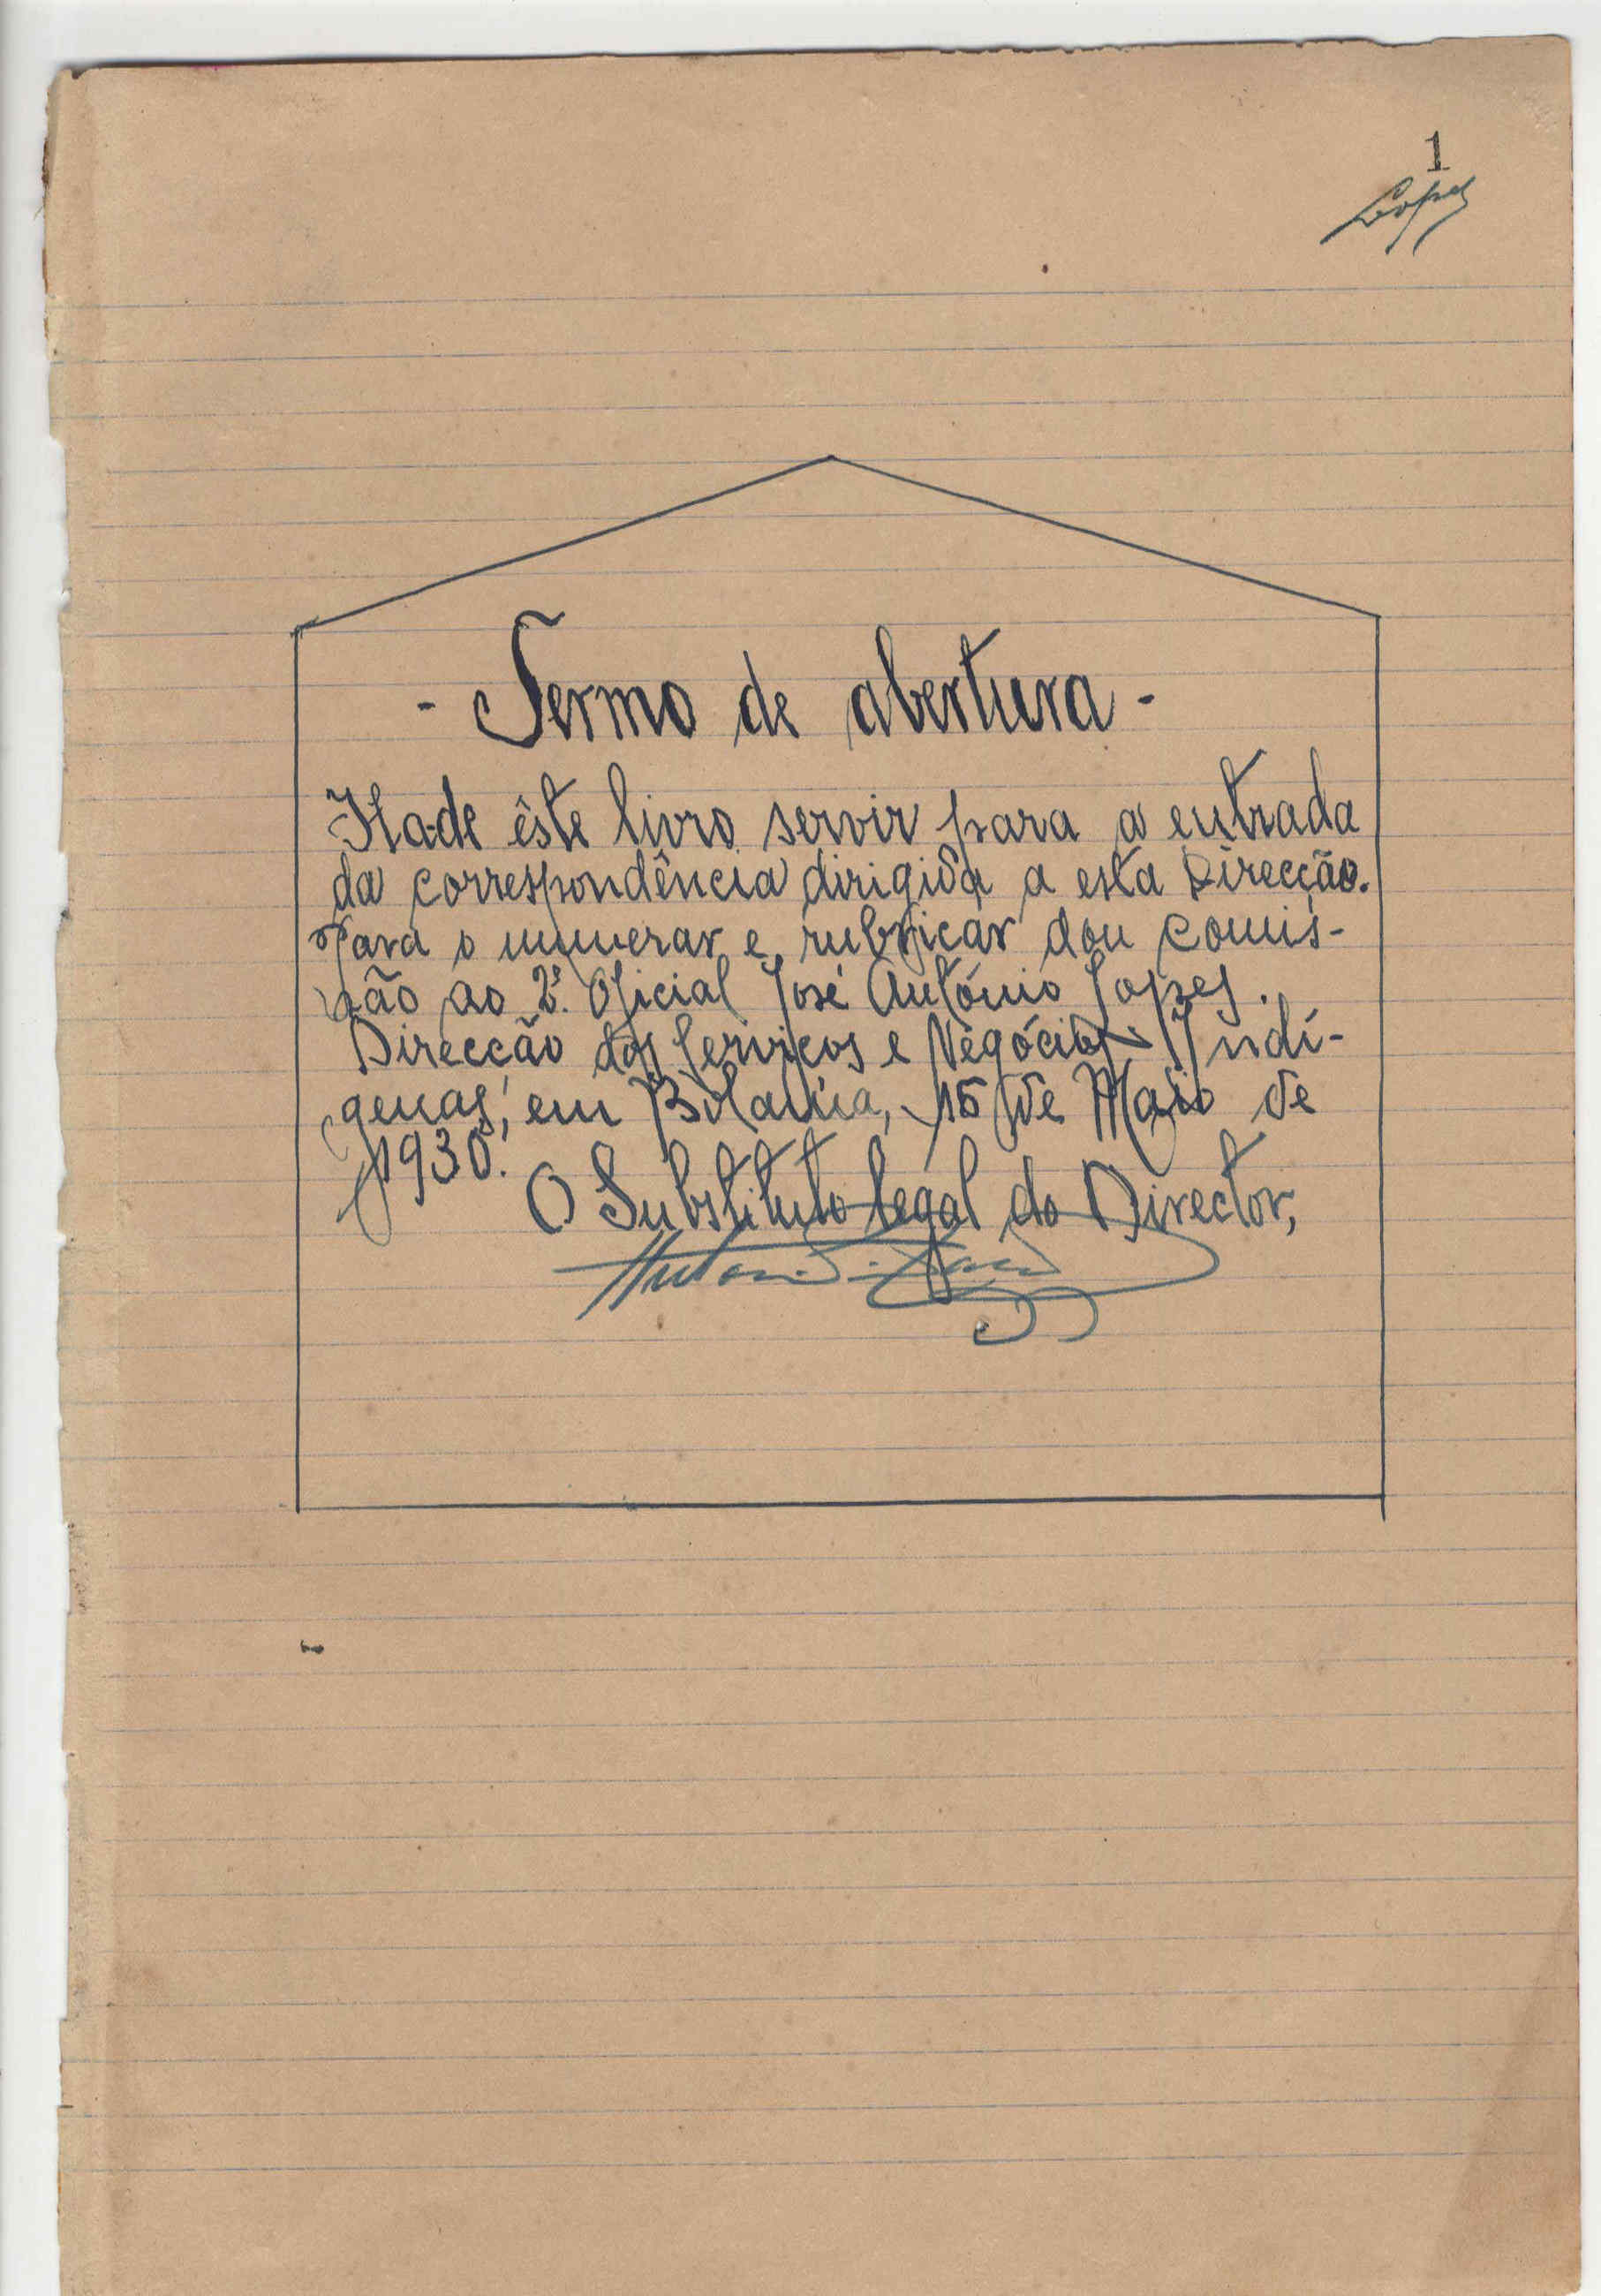 1
Lopes
- Termo de abertura -
Ha-de êste livro servir para a entrada
da correspondência dirigida a esta Direcção.
Para o numerar e rubricar dou comis-
são ao 2º. Oficial José António Lopes.
Direcção dos Serviços e Negócios Indí-
genas, em Bolama, 15 de Maio de
1930.
O Substituto legal do Director,